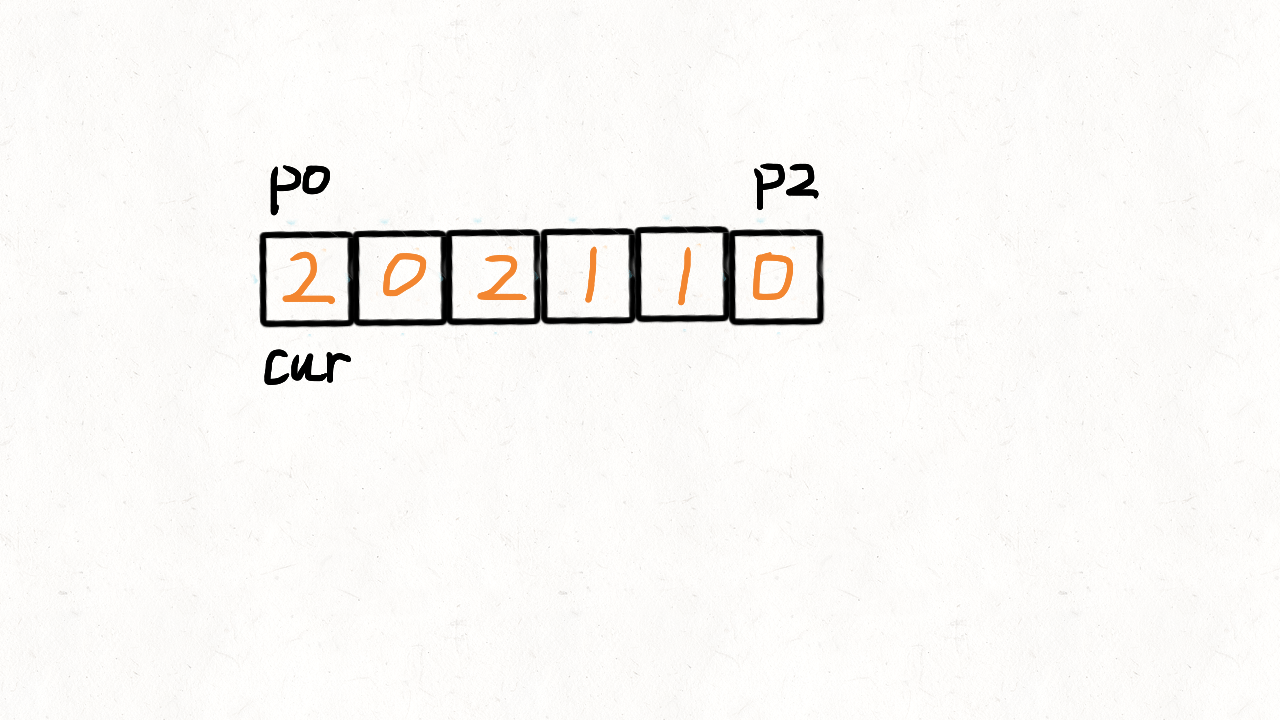 p0 p2
2 0 2 1 1 0
cur